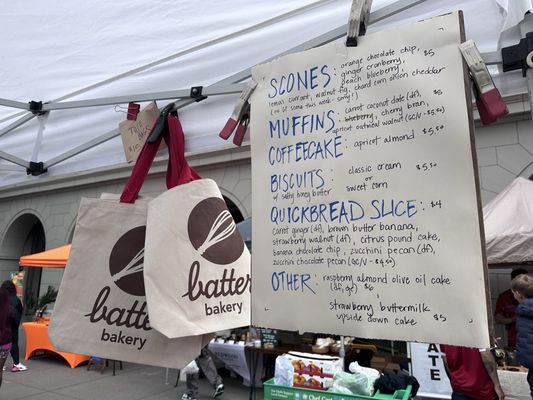 SCONES: orange chocolate chip, $5
ginger cranberry,
peach blueberry,
lemon currant, walnut fig, chard corn onion cheddar
MUFFINS: carrot coconut date (df), $5
blueberry, cherry bran,
apricot oatmeal walnut (GC/V - $5.50)
COFFEECAKE: apricot almond $5.50
BISCUITS: classic cream $5.50
w/ salty honey butter or
sweet corn
QUICKBREAD SLICE: $4
carrot ginger (df), brown butter banana,
strawberry walnut (df), citrus pound cake,
banana chocolate chip, zucchini pecan (df),
zucchini chocolate pecan (GC/V - $4.50)
OTHER: raspberry almond olive oil cake
(df, gc) $6
strawberry buttermilk
upside down cake $5
batter
bakery
batter
bakery